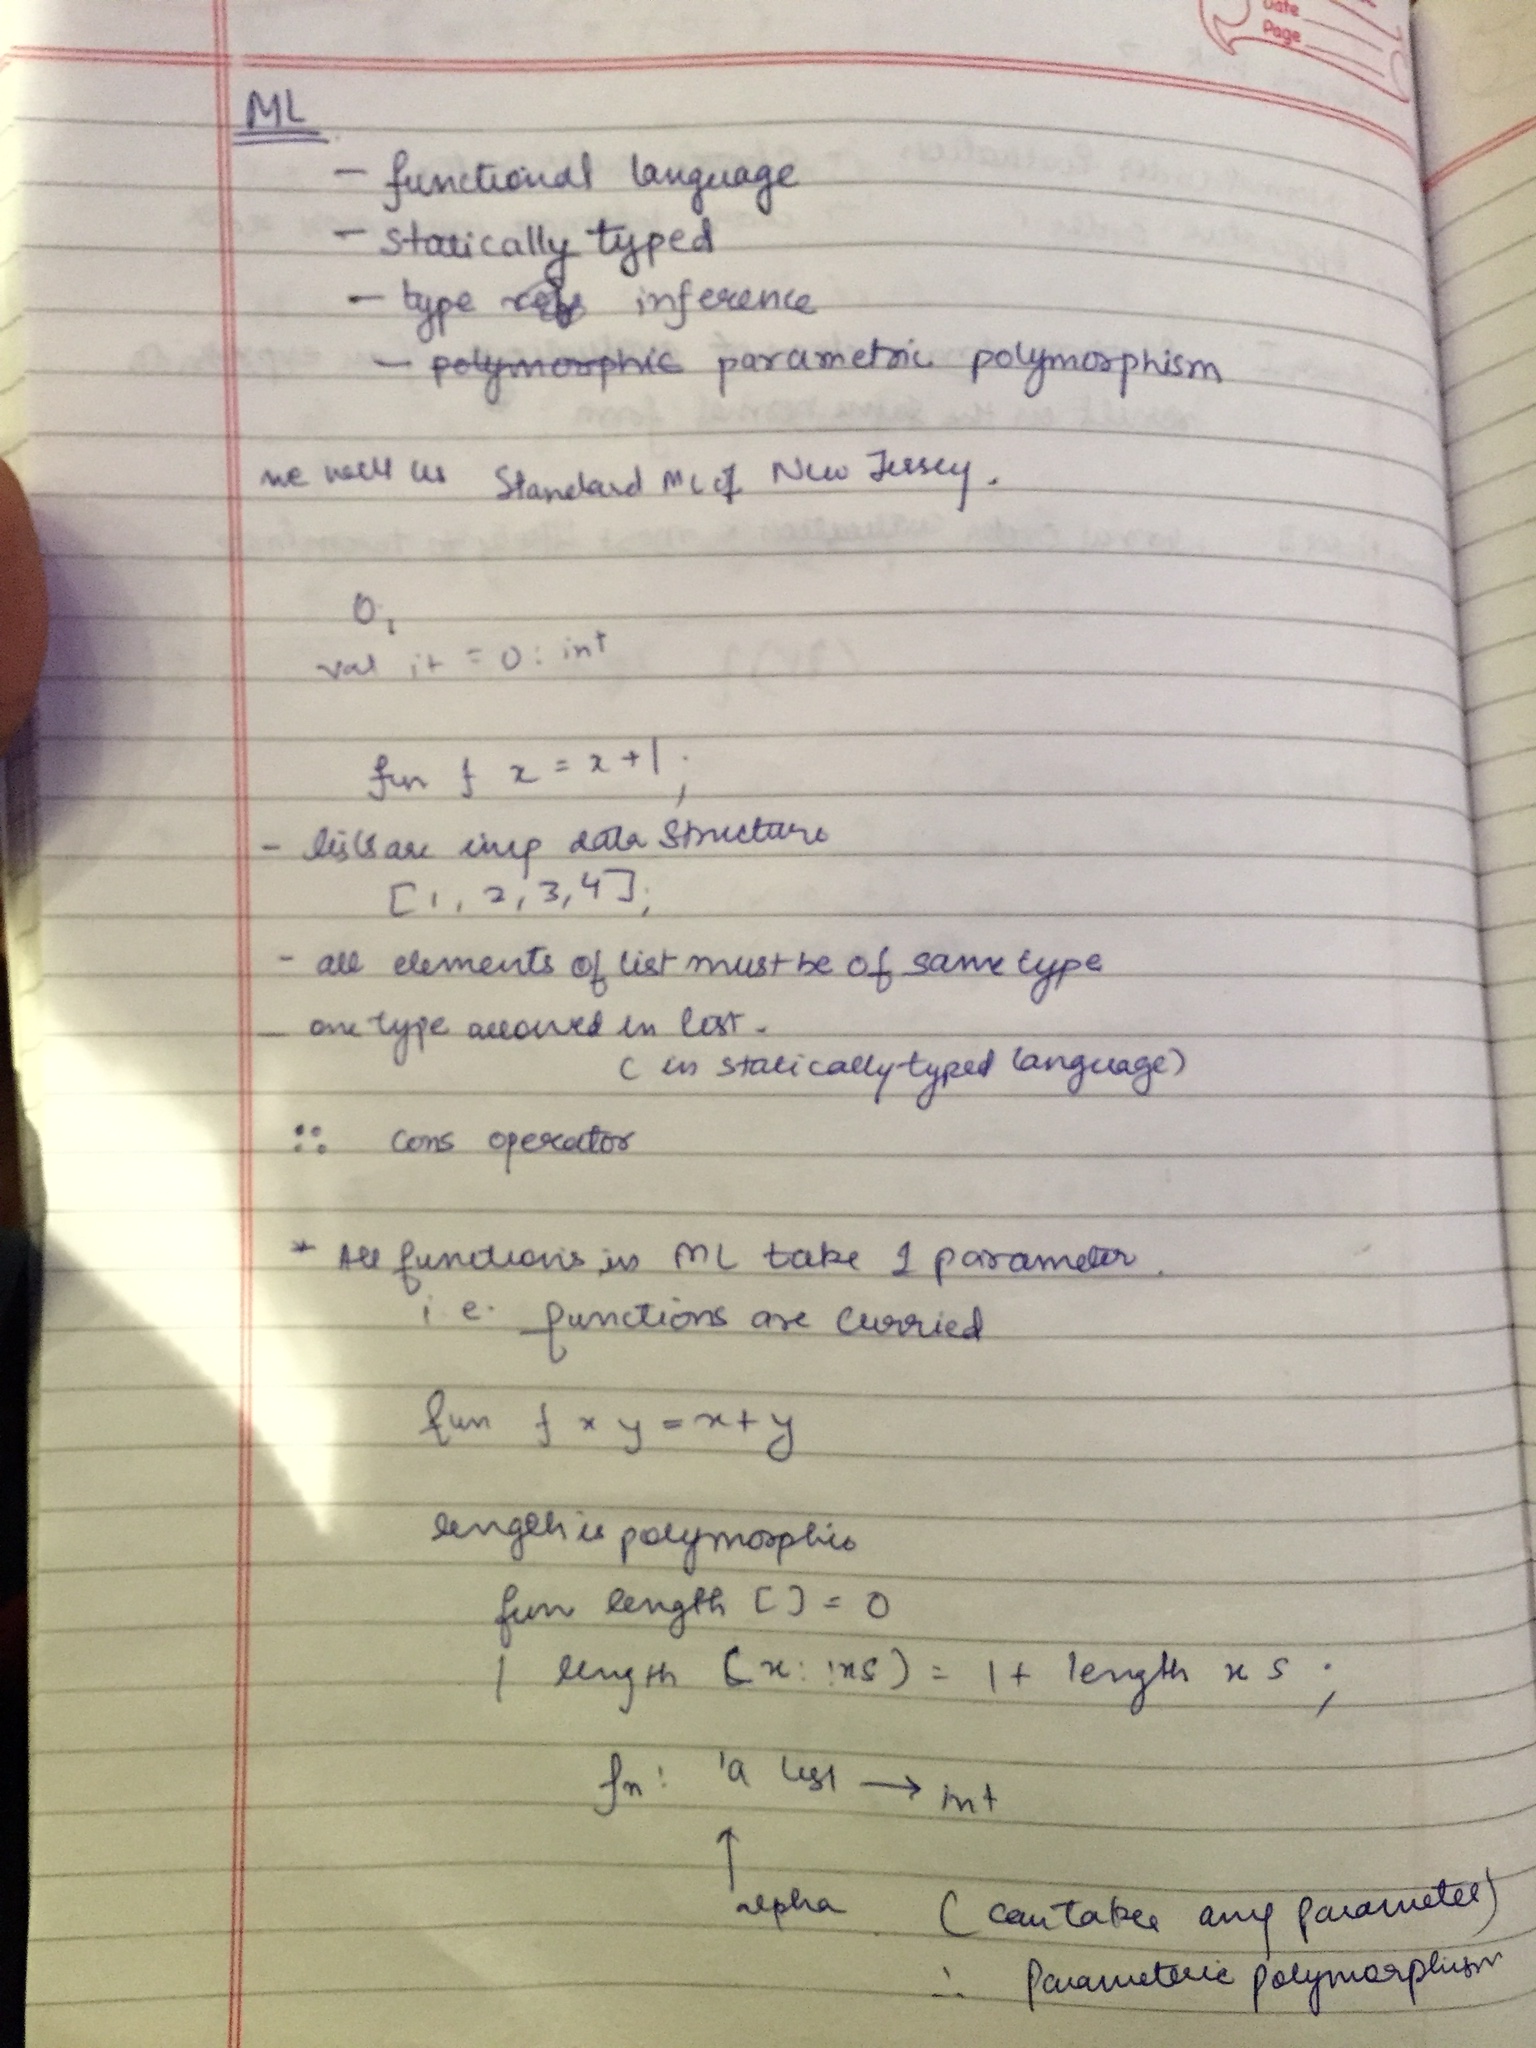 Date
Page
ML
- functional language
- statically typed
- type inference
- polymorphic parametric polymorphism
we will us Standard ML of New Jersey.
0;
val it = 0 : int
fun f x = x + 1 ;
- lists are imp data structure
[1, 2, 3, 4];
- all elements of list must be of same type
- one type allowed in list.
( in statically typed language)
:: cons operator
* All functions in ML take 1 parameter.
i.e. functions are curried
fun f x y = x + y
length is polymorphic
fun length [] = 0
| length (x::xs) = 1 + length xs ;
fn : 'a list → int
↑
alpha ( can take any parameter)
∴ Parameteric polymorphism